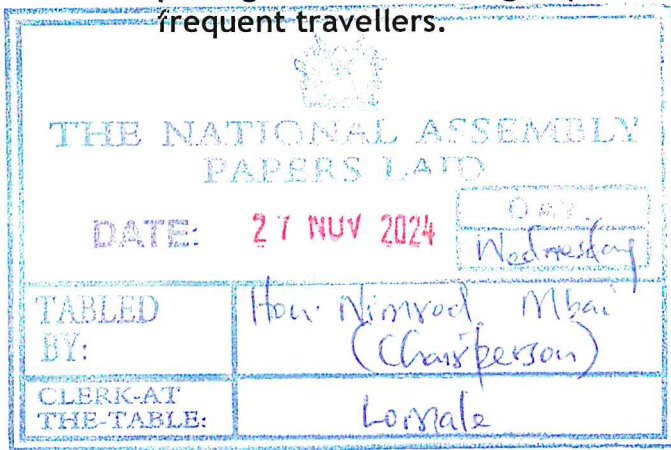 frequent travellers.
THE NATIONAL ASSEMBLY
PAPERS LAID
DATE: 27 NOV 2024
DAY.
Wednesday
TABLED BY:
Hon. Nimrod Mbai
(Chairperson)
CLERK-AT
THE-TABLE: